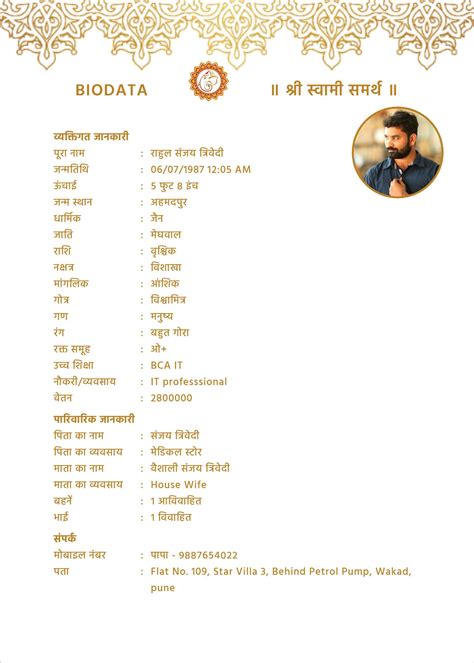 BIODATA ॥ श्री स्वामी समर्थ ॥
व्यक्तिगत जानकारी
पूरा नाम : राहुल संजय त्रिवेदी
जन्मतिथि : 06/07/1987 12:05 AM
ऊंचाई : 5 फुट 8 इंच
जन्म स्थान : अहमदपुर
धार्मिक : जैन
जाति : मेघवाल
राशि : वृश्चिक
नक्षत्र : विशाखा
मांगलिक : आंशिक
गोत्र : विश्वामित्र
गण : मनुष्य
रंग : बहुत गोरा
रक्त समूह : ओ+
उच्च शिक्षा : BCA IT
नौकरी/व्यवसाय : IT professsional
वेतन : 2800000
पारिवारिक जानकारी
पिता का नाम : संजय त्रिवेदी
पिता का व्यवसाय : मेडिकल स्टोर
माता का नाम : वैशाली संजय त्रिवेदी
माता का व्यवसाय : House Wife
बहनें : 1 आविवाहित
भाई : 1 विवाहित
संपर्क
मोबाइल नंबर : पापा - 9887654022
पता : Flat No. 109, Star Villa 3, Behind Petrol Pump, Wakad,
pune